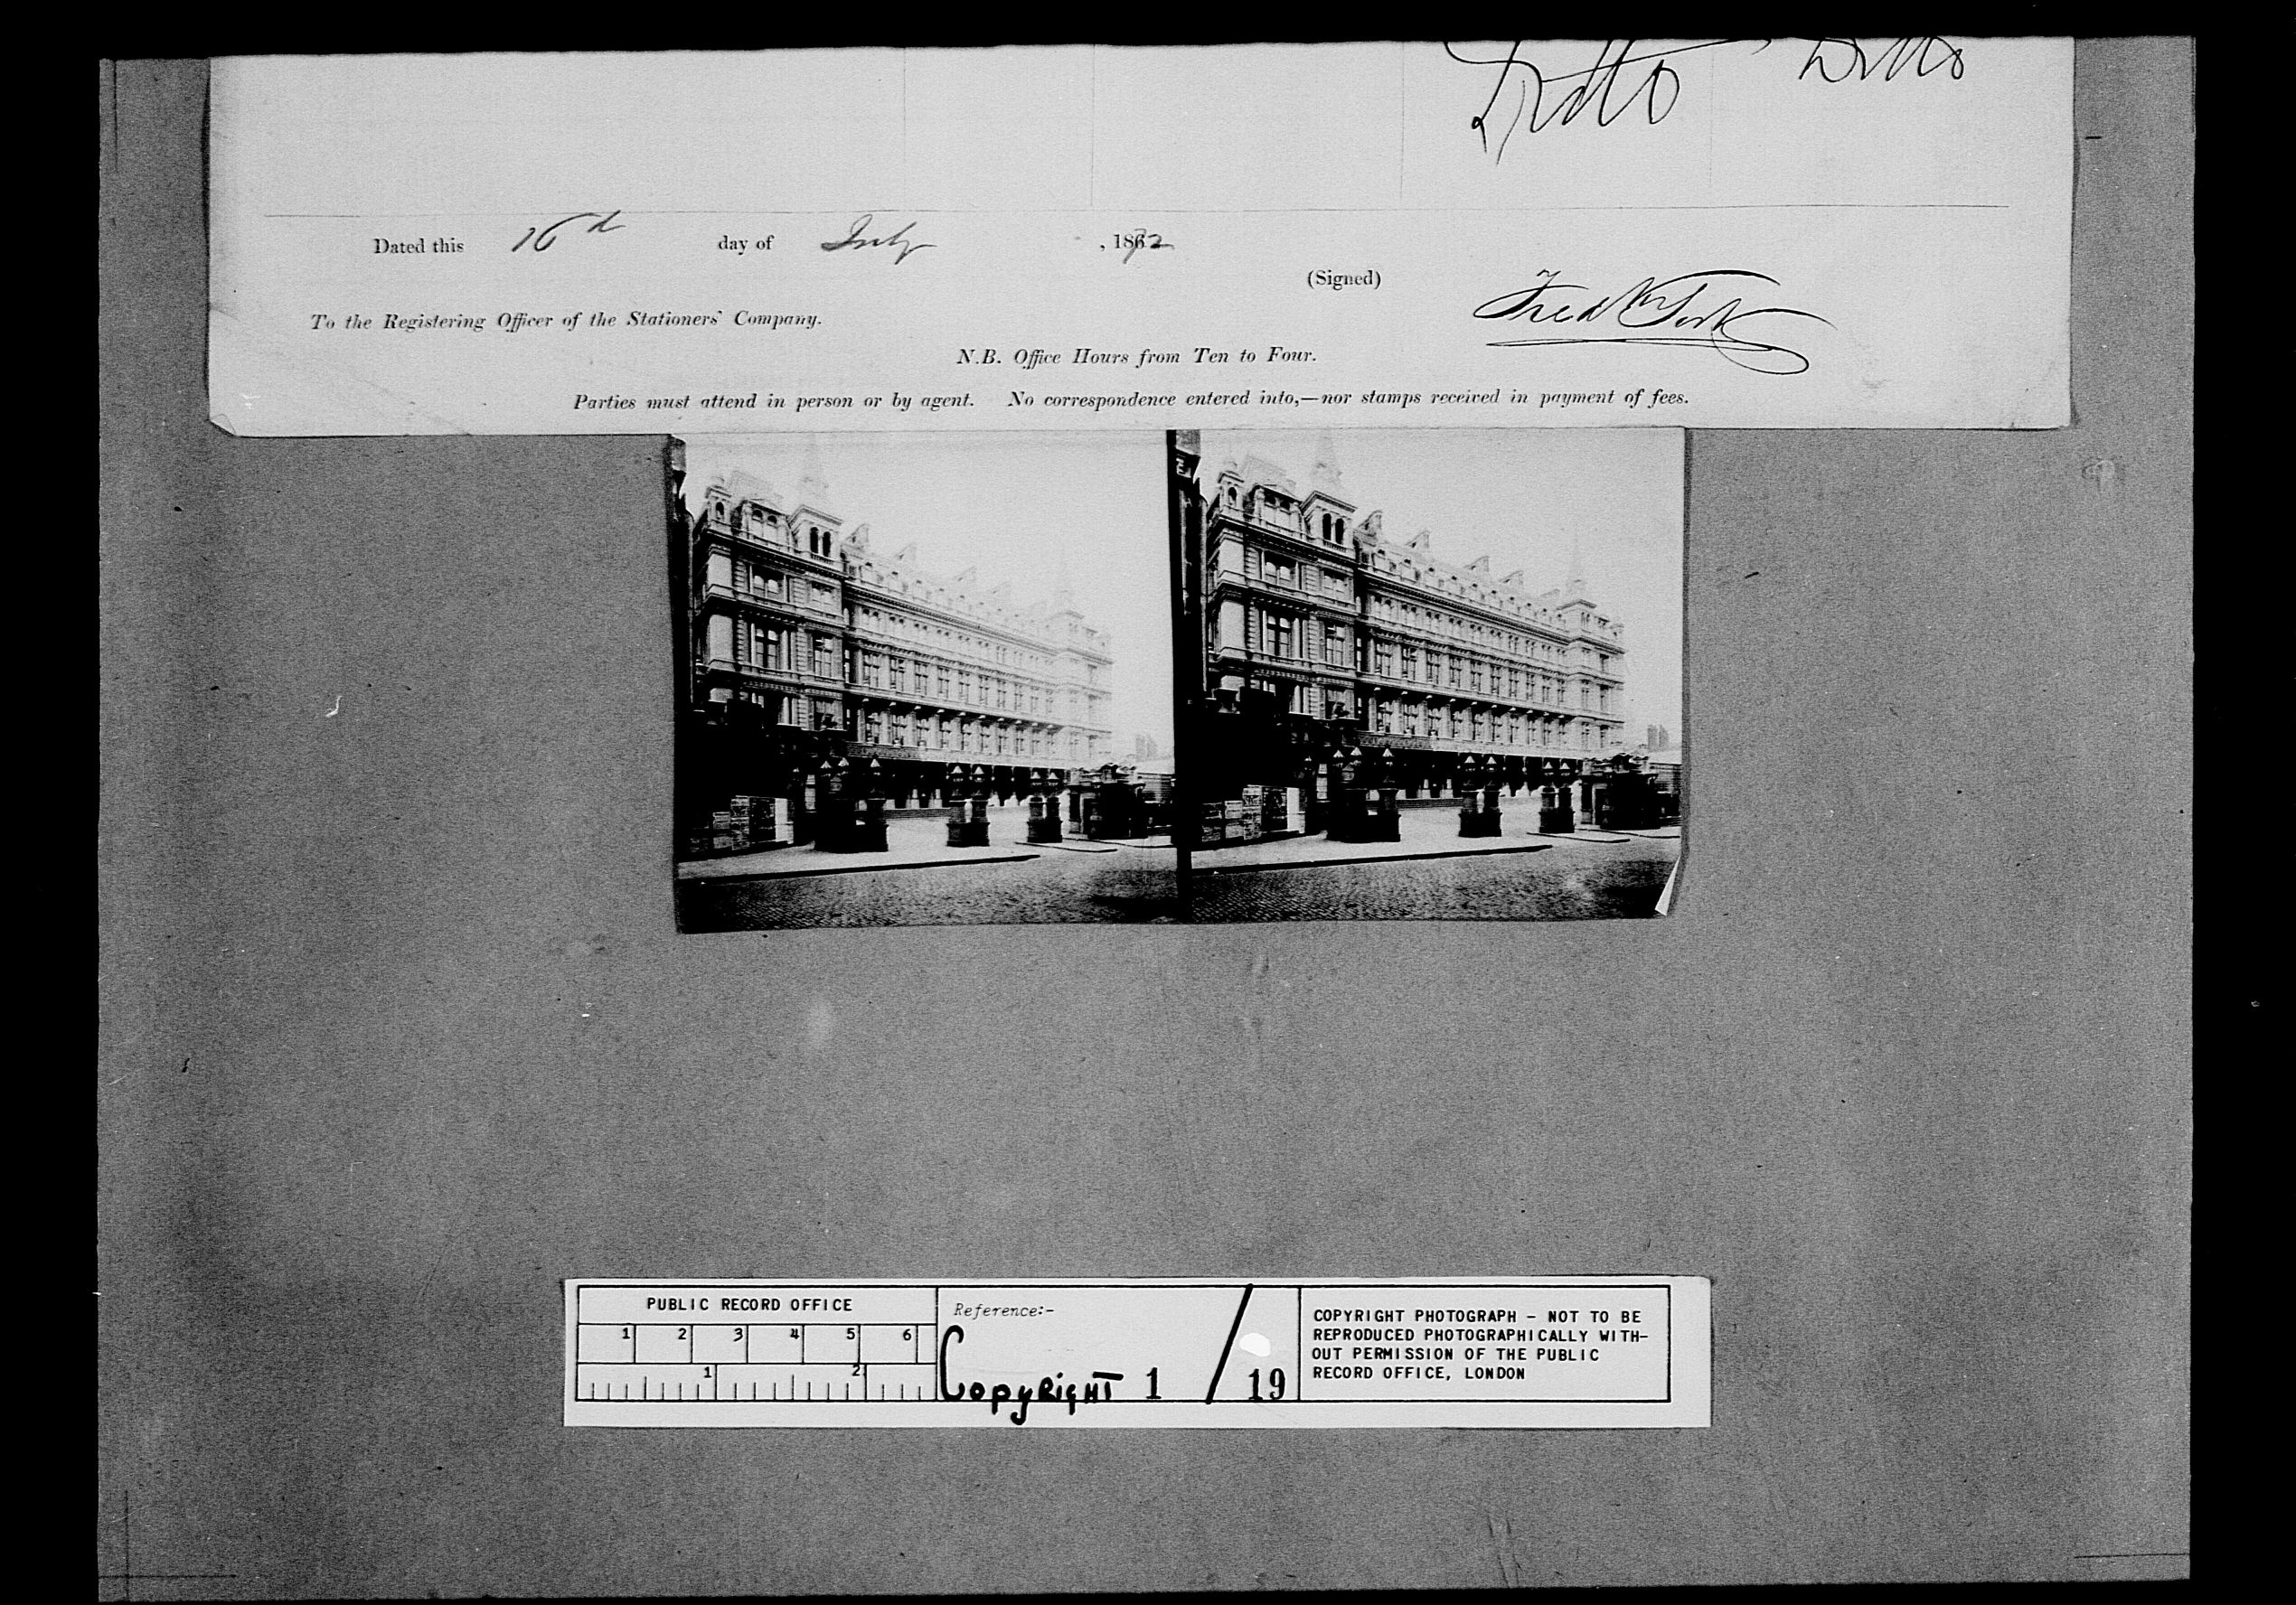 Ditto Ditto
Dated this 16th day of July , 1872
(Signed)
Fredk York
To the Registering Officer of the Stationers' Company.
N.B. Office Hours from Ten to Four.
Parties must attend in person or by agent. No correspondence entered into,—nor stamps received in payment of fees.
PUBLIC RECORD OFFICE
1 2 3 4 5 6
1 2
Reference:-
COPYRIGHT 1 / 19
COPYRIGHT PHOTOGRAPH - NOT TO BE
REPRODUCED PHOTOGRAPHICALLY WITH-
OUT PERMISSION OF THE PUBLIC
RECORD OFFICE, LONDON